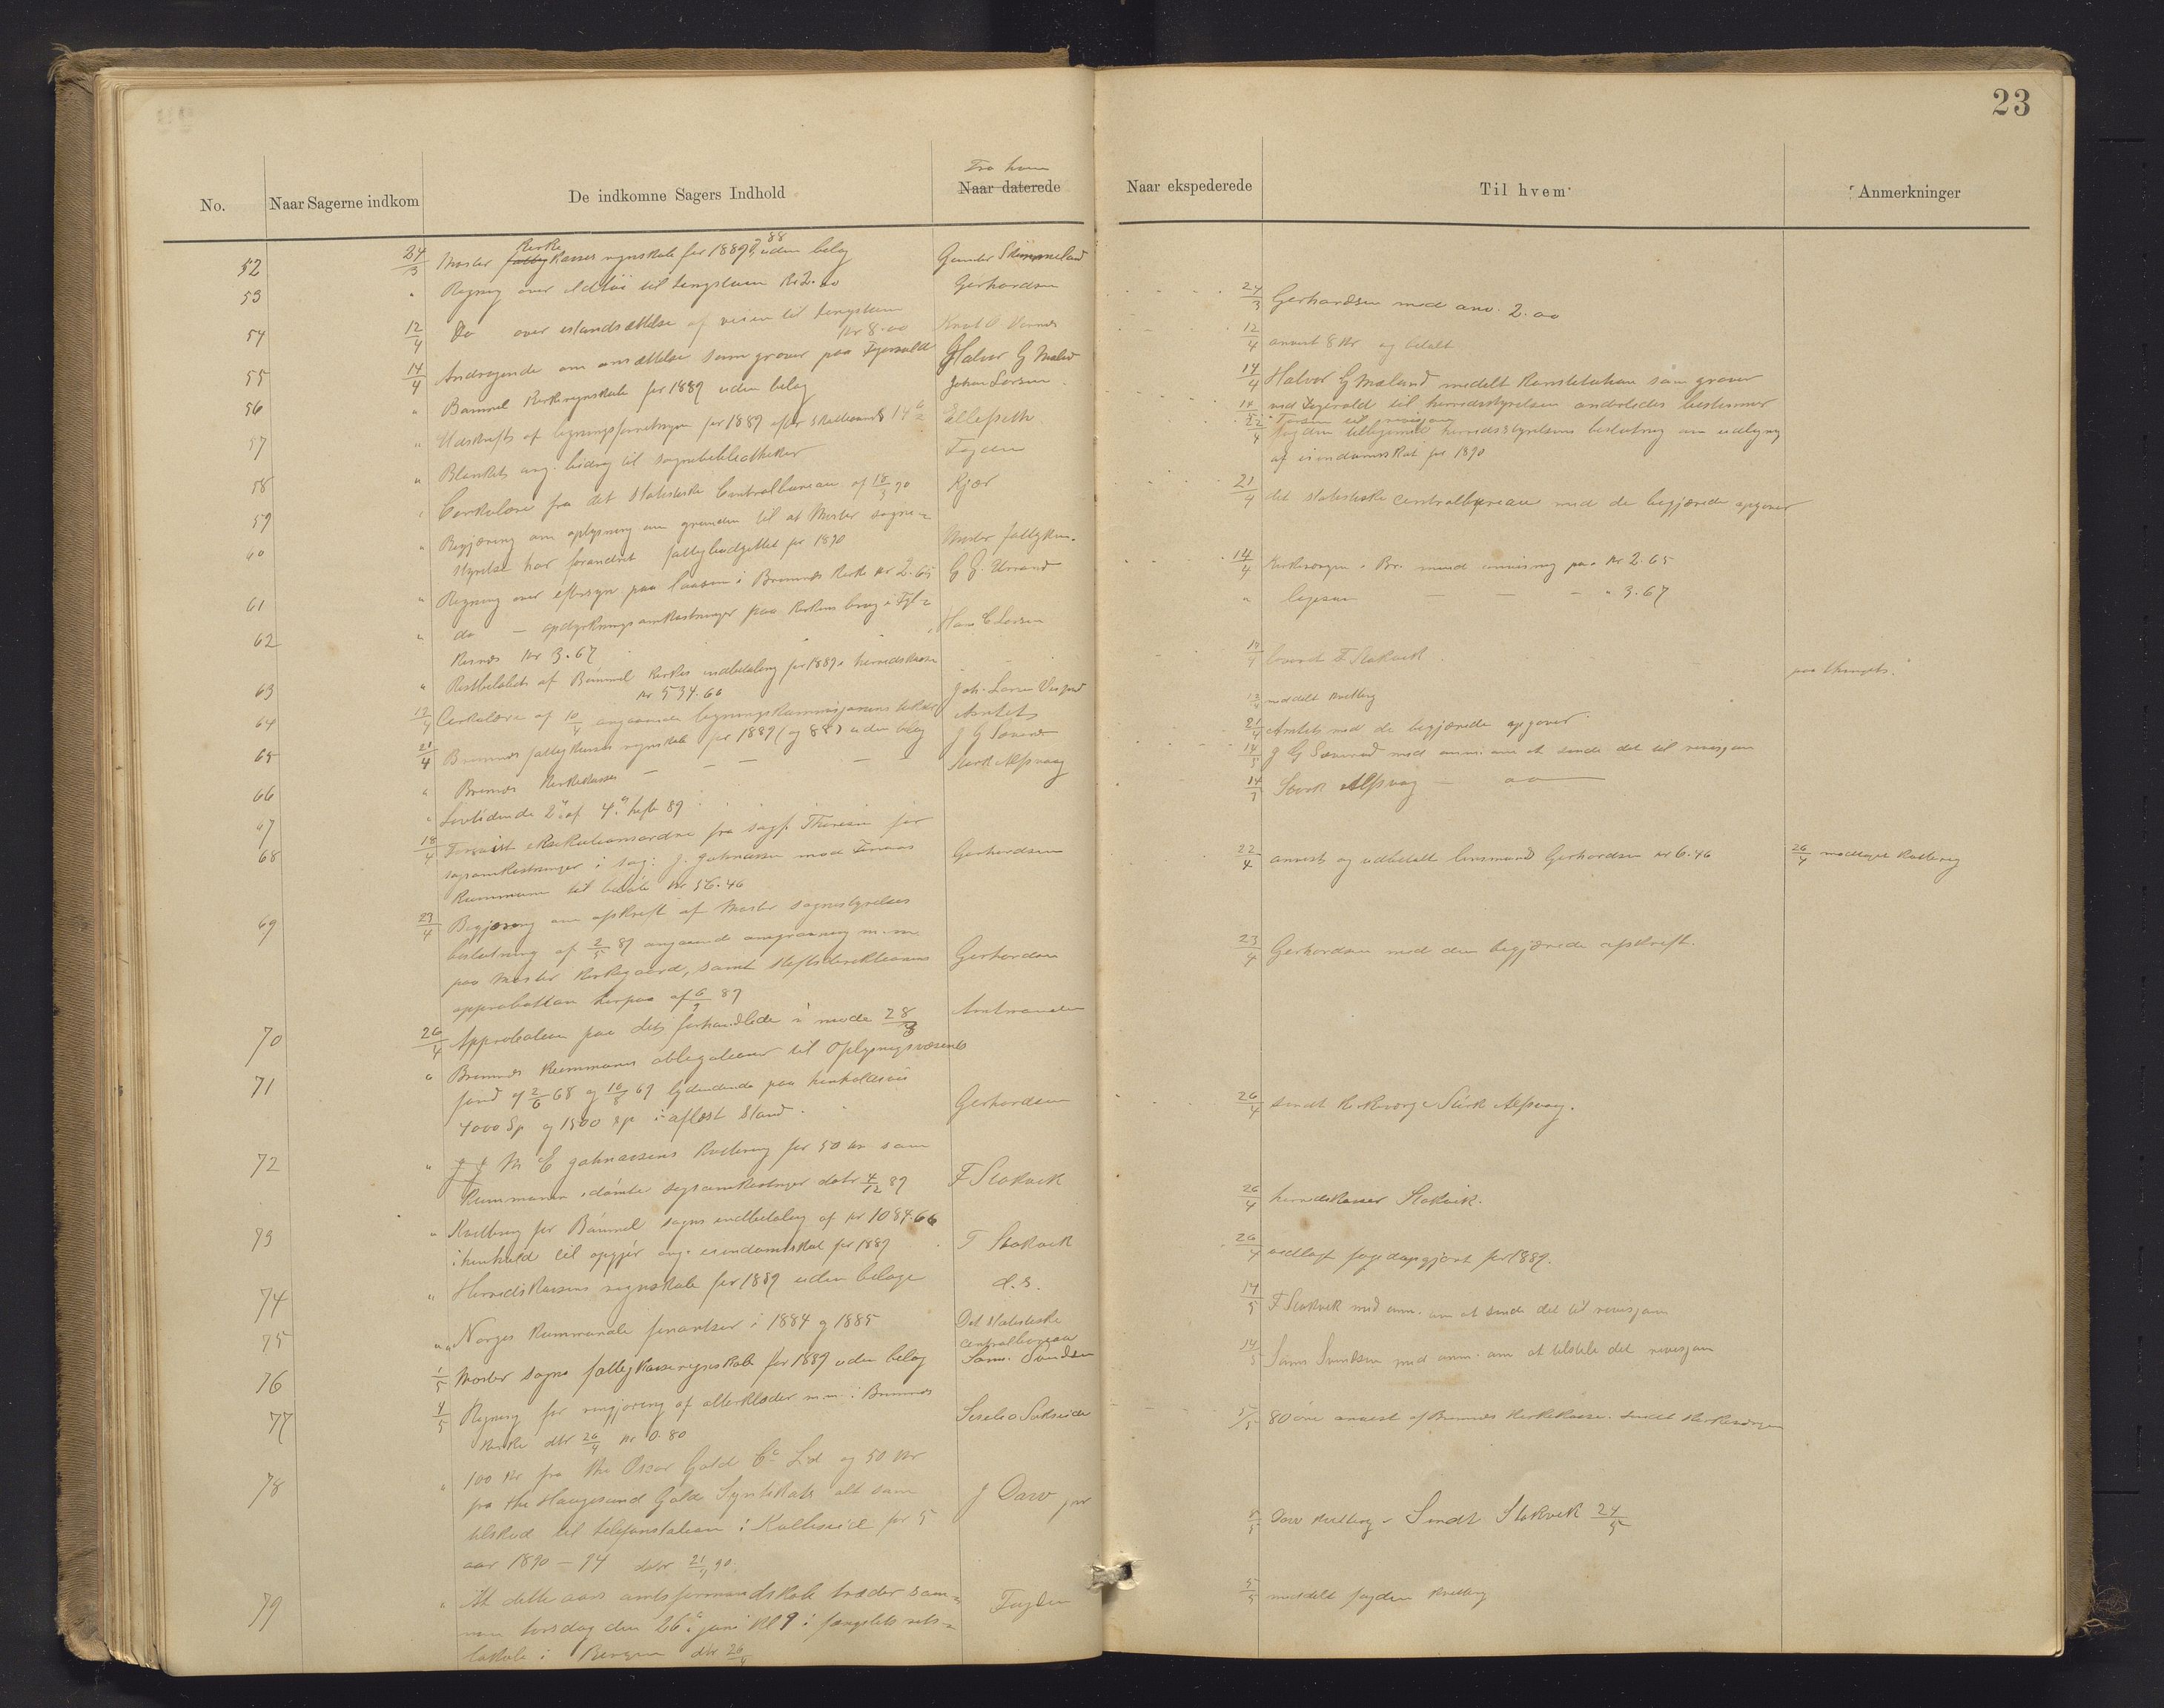 23
Fra hvem
No.
Naar Sagerne indkom
De indkomne Sagers Indhold
Naar daterede
Naar ekspederede
Til hvem
Anmerkninger
52 24/3 Moster fattig kirke kasses regnskab for 1889 & 88 uden belag Gunder
53 " Regning over til tingstuen Kr 2.00 Gerhardsen 24/3 Gerhardsen med anv. 2.00
54 12/4 Do over istandsættelse af veien til tingstuen
Kr 8.00 Knut O 12/4 anvist 8 Kr og betalt
55 14/4 Andragende om ansættelse som graver paa Halvor G Mæland 14/4 Halvor G Mæland meddelt Konstitution som graver
56 " Bømmel Kirkeregnskab for 1889 uden belag Johan Larsen
ved til herredsstyrelsen anderledes bestemmer
57 " Udskrift af ligningsforretningen for 1889 efter Ellefseth 22/4 Fogden tilligemed herredsstyrelsens beslutning om udligning
af eiendomsskat for 1890
58 " Blanket ang. bidrag til sognebibliotheker Fogden
59 " Cirkulære fra det statistiske Centralbureau af 18/3 90 Kjær 21/4 det statistiske centralbureau med de begjærede opgaver
60 " Begjæring om oplysning om grunden til at Moster sogne-
styrelse har forandret fattigbudgettet for 1890 Moster fattigkom.
61 " Regning over eftersyn paa laasen i Bremnes Kirke Kr 2.65 14/4 Kirkeværgen i Br. med anvisning paa Kr 2.65
62 " do — opdyrkningsomkostninger paa
Kr 3.67 Hans C Larsen " ligesaa — — — " 3.67
63 " Restbeløbet af Bømmel Kirkes indbetaling for 1889 i herredskasse
Kr 534.66 Joh. Larsen F. Stokvik
paa thinget.
64 Cirkulære af 10/4 angaaende ligningskommissionens Amtet 21/4 Amtet med de begjærede opgaver
65 21/4 Bremnes fattigkasses regnskab for 1889 (og 88) uden belag J G 14/5 J G med anm. om at sende det til revisjon
66 " Bremnes Kirkekasses — — — — Størk Alfsvaag 14/5 Størk Alfsvaag — do —
67 " Lovtidende 2. af 4. hefte 89
68 18/4 eksekutionsordre fra sagf. Thoresen for
sagsomkostninger i sag: J. Johnassen mod
Kommune til beløb Kr 56.46 Gerhardsen 22/4 anvist og udbetalt lensmand Gerhardsen Kr 6.46 26/4 modtaget Kvittering
69 23/4 Begjæring om afskrift af Moster sognestyrelses
beslutning af 2/5 89 angaaende m.m.
paa Moster Kirkegaard, samt stiftsdirektionens
approbation herpaa af 6/9 89 Gerhardsen 23/4 Gerhardsen med den begjærede afskrift.
70 26/4 Approbation paa det forhandlede i møde 28/3 Amtmanden
71 " Bremnes Kommunes obligationer til Oplysningsvæsenets
fond af 2/6 68 og 10/8 69 lydende paa henholdsvis
4000 Sp og 1500 Sp i aflæst stand. Gerhardsen 26/4 sendt Kirkeværge Størk Alfsvaag.
72 " M E Johnassens Kvittering for 50 Kr som
Kommunen idømte sagsomkostninger datr 4/12 89 F Stokvik 26/4 herredskasser Stokvik.
73 " Kvittering for Bømmel sogns indbetaling af Kr 1084.66
i henhold til opgjør ang. eiendomsskat for 1889 F Stokvik 26/4 vedlagt fogedopgjøret for 1889.
74 " Herredskassens regnskab for 1889 uden belage d.s. 14/5 F Stokvik med anm. om at sende det til revisjon
75 " Norges Kommunale finantser i 1884 og 1885 Det statistiske
centralbureau
76 1/5 Moster sogns fattigkasseregnskab for 1889 uden belag Sams. Svendsen 14/5 Sams Svendsen med anm. om at tilstille det revisjon
77 4/5 Regning for rengjøring af alterklæder m.m. i Bremnes
Kirke dtr 26/4 Kr 0.80 5/5 80 øre anvist af Bremnes Kirkekasse. Sendt Kirkeværgen
78 " 100 Kr fra the Oscar Gold Co Ltd og 50 Kr
fra the Haugesund Gold Syndikat alt som
tilskud til telefonstation i Kalleseid for 5
aar 1890 — 94 J Daw jnr 5/5 Daw Kvittering - Sendt Stokvik 24/5
79 " At dette aars amtsformandskab træder sam-
men torsdag den 26. juni Kl 9 i fængslets rets-
lokale i Bergen dtr 26/4 Fogden 5/5 meddelt fogden Kvittering